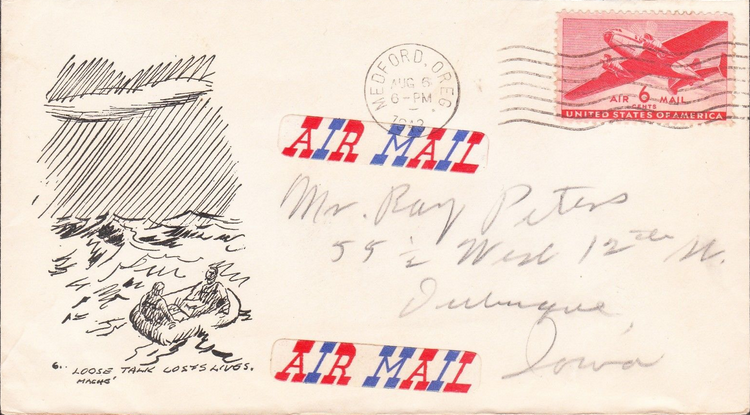 MEDFORD, OREG.
AUG 6
6-PM
1942
AIR 6 MAIL
CENTS
UNITED STATES OF AMERICA
AIR MAIL
Mr. Ray Peters
55 1/2 West 12th St.
Dubuque,
Iowa
AIR MAIL
6.. LOOSE TALK COSTS LIVES.
MACHE'